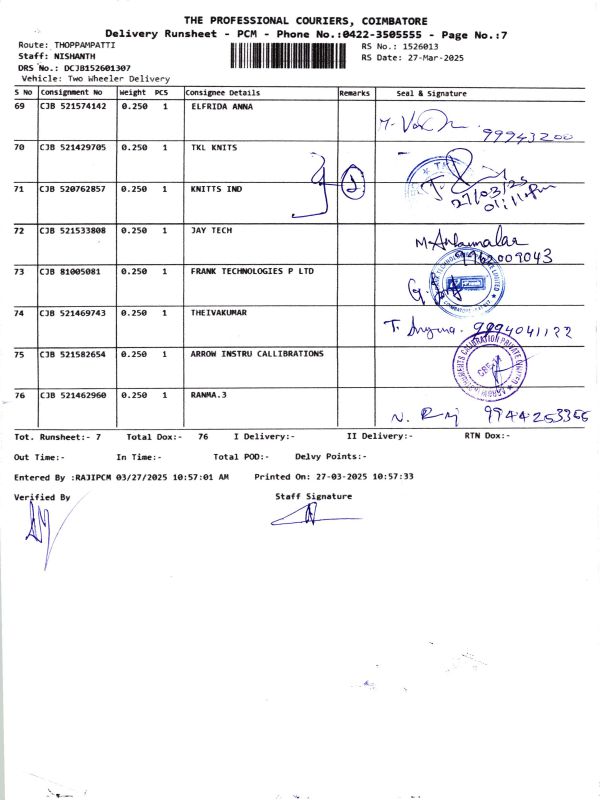 THE PROFESSIONAL COURIERS, COIMBATORE
Delivery Runsheet - PCM - Phone No.:0422-3505555 - Page No.:7
Route: THOPPAMPATTI RS No.: 1526013
Staff: NISHANTH RS Date: 27-Mar-2025
DRS No.: DCJB152601307
Vehicle: Two Wheeler Delivery
S No Consignment No Weight PCS Consignee Details Remarks Seal & Signature
69 CJB 521574142 0.250 1 ELFRIDA ANNA
99943200
70 CJB 521429705 0.250 1 TKL KNITS
2
27/03/25
01:11pm
71 CJB 520762857 0.250 1 KNITTS IND
72 CJB 521533808 0.250 1 JAY TECH
9962009043
73 CJB 81005081 0.250 1 FRANK TECHNOLOGIES P LTD
74 CJB 521469743 0.250 1 THEIVAKUMAR
9994041122
75 CJB 521582654 0.250 1 ARROW INSTRU CALLIBRATIONS
76 CJB 521462960 0.250 1 RANMA.3
N. Raj 9944253366
Tot. Runsheet:- 7 Total Dox:- 76 I Delivery:- II Delivery:- RTN Dox:-
Out Time:- In Time:- Total POD:- Delvy Points:-
Entered By :RAJIPCM 03/27/2025 10:57:01 AM Printed On: 27-03-2025 10:57:33
Verified By Staff Signature